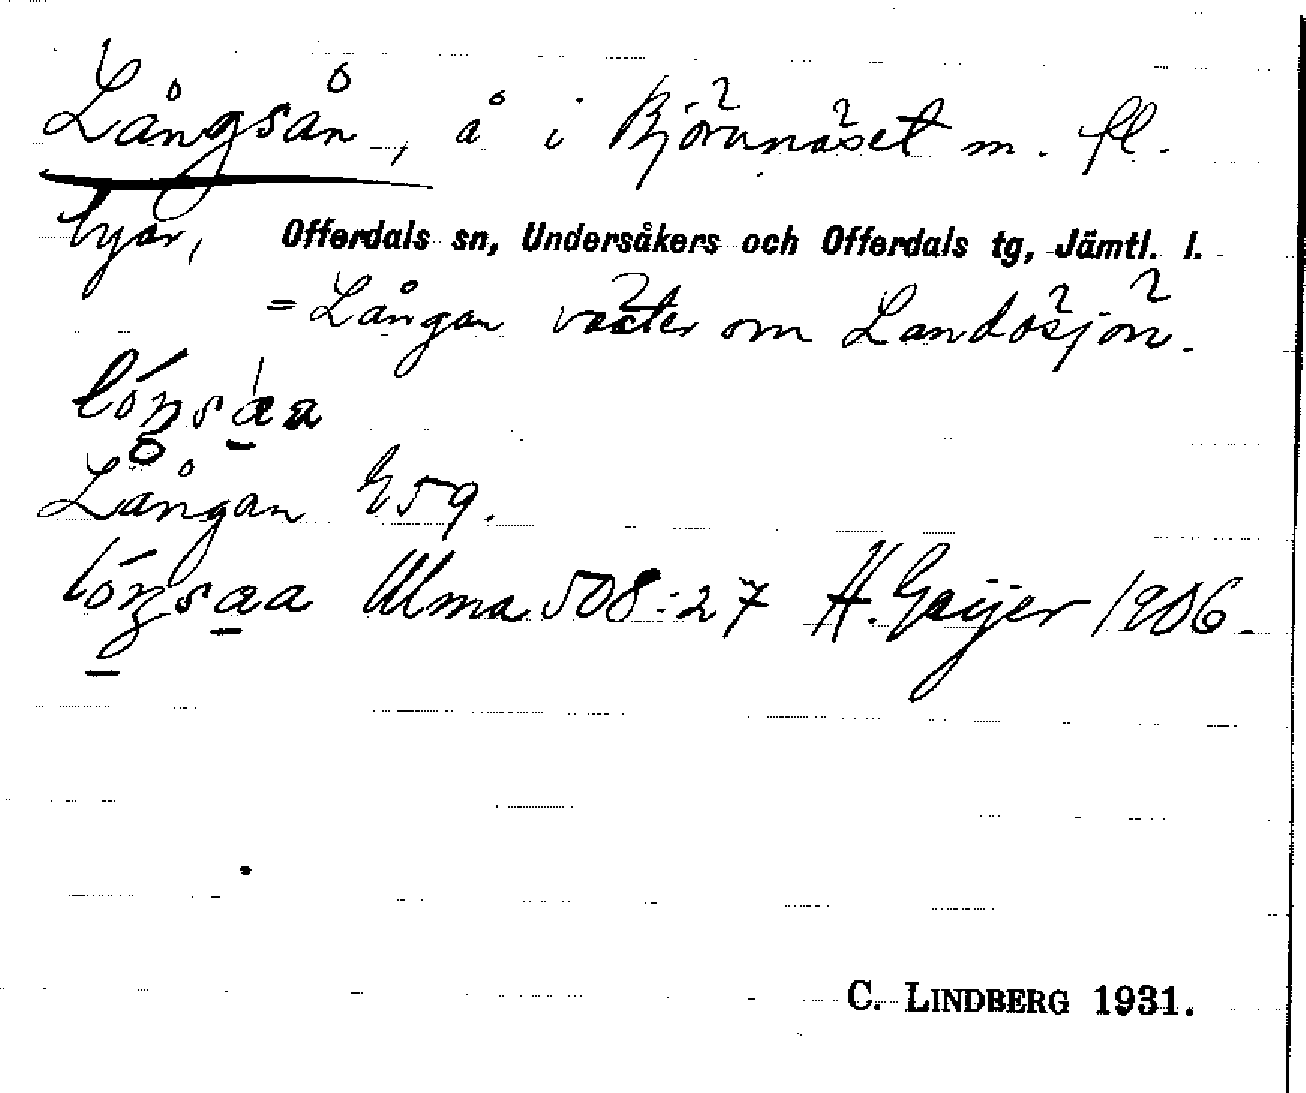 Långsån, å i Björnnäset m. fl.
byar, Offerdals sn, Undersåkers och Offerdals tg, Jämtl. l.
= Långan väster om Landösjön.
Långan E59.
Ulma 508:27 H. Geijer 1906.
C. LINDBERG 1931.